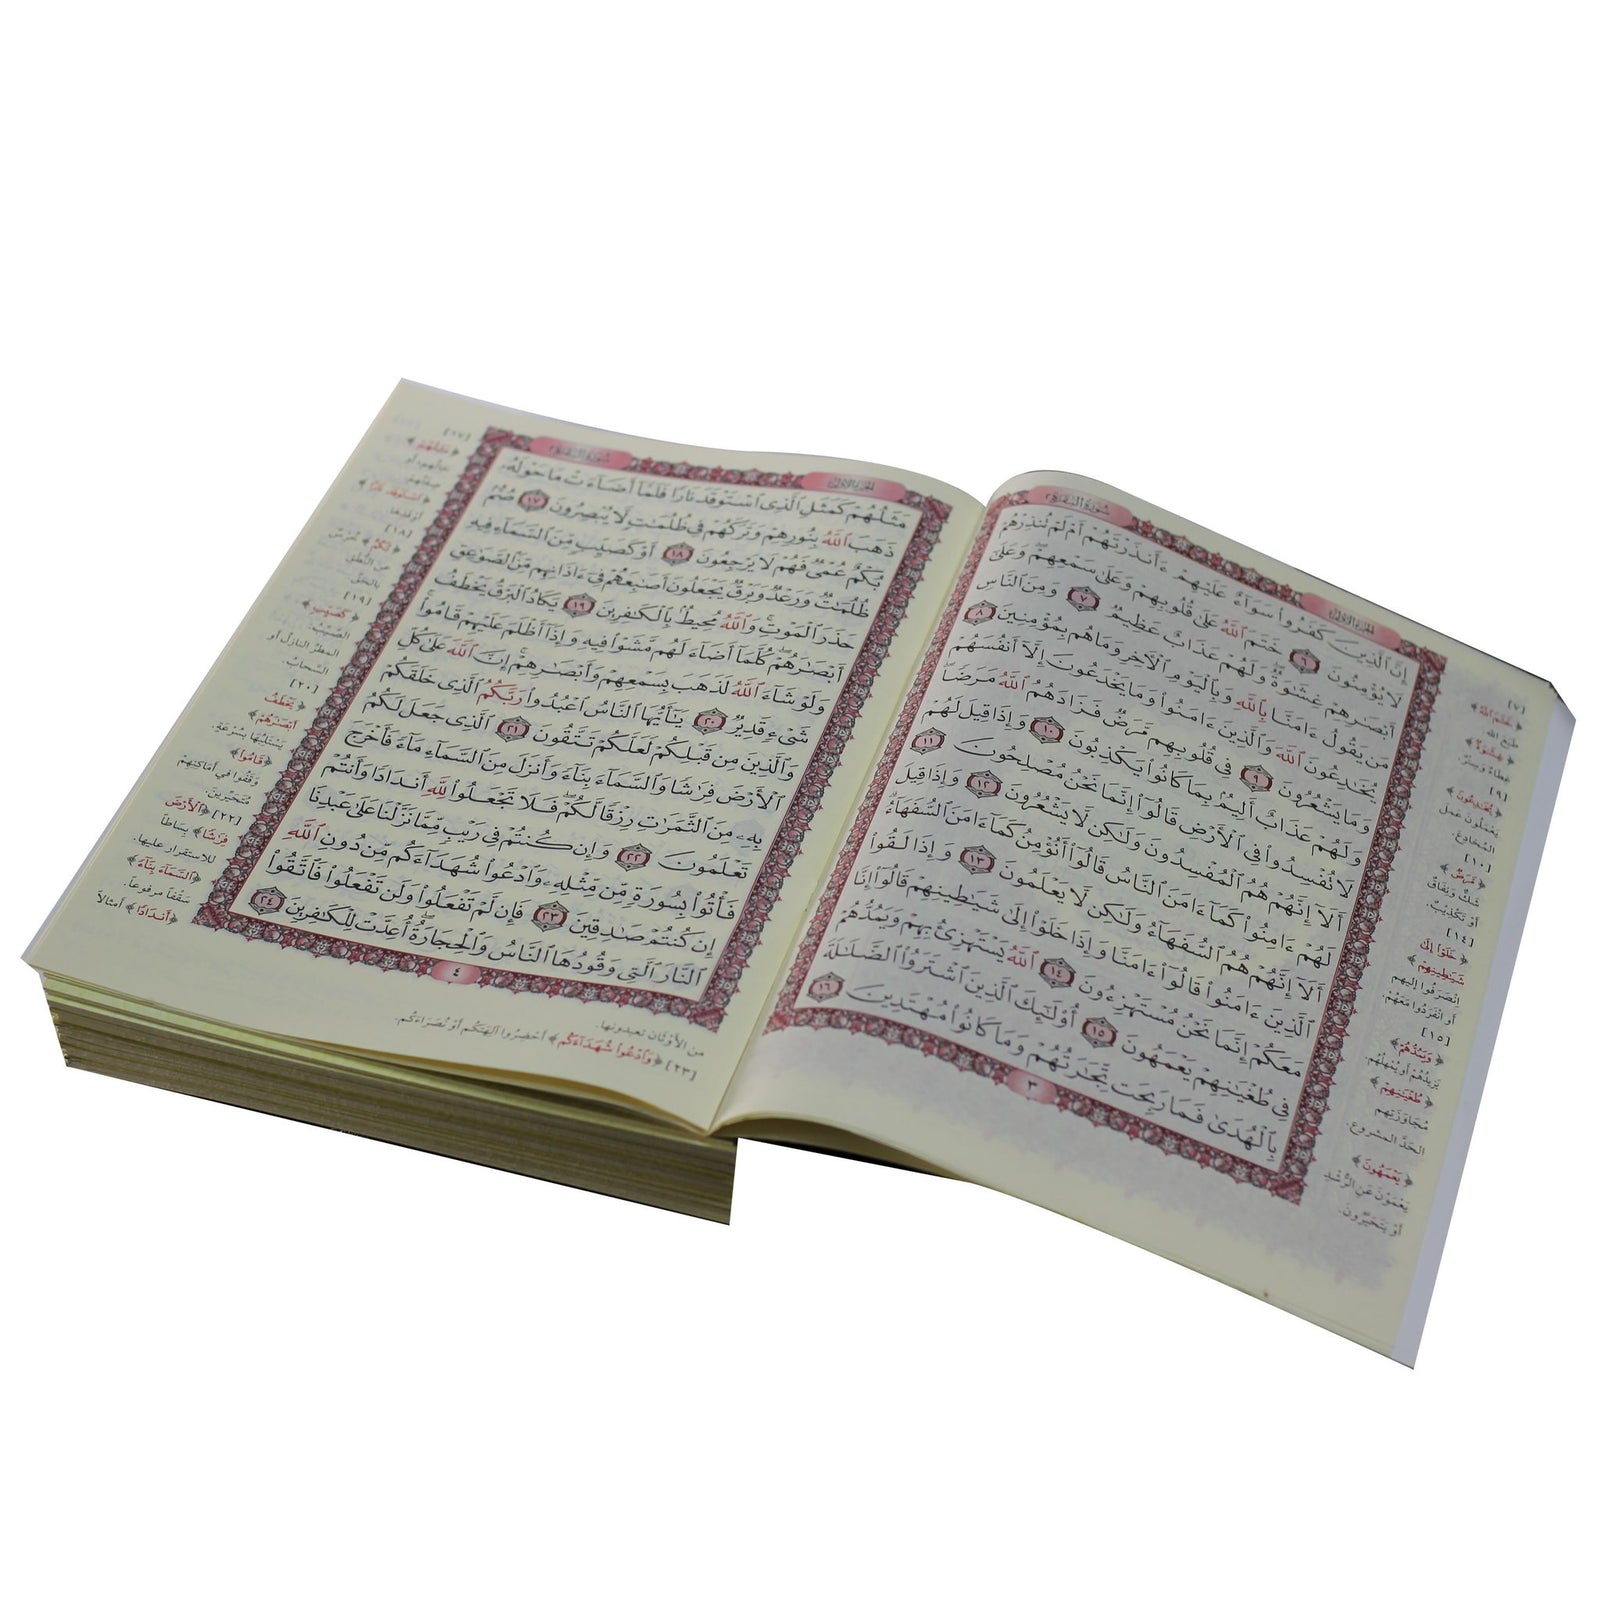 الجزء الأول
سورة البقرة ٢
إِنَّ ٱلَّذِينَ كَفَرُوا۟ سَوَآءٌ عَلَيْهِمْ ءَأَنذَرْتَهُمْ أَمْ لَمْ تُنذِرْهُمْ
لَا يُؤْمِنُونَ ٦ خَتَمَ ٱللَّهُ عَلَىٰ قُلُوبِهِمْ وَعَلَىٰ سَمْعِهِمْ ۖ وَعَلَىٰٓ
أَبْصَـٰرِهِمْ غِشَـٰوَةٌ ۖ وَلَهُمْ عَذَابٌ عَظِيمٌ ٧ وَمِنَ ٱلنَّاسِ
مَن يَقُولُ ءَامَنَّا بِٱللَّهِ وَبِٱلْيَوْمِ ٱلْـَٔاخِرِ وَمَا هُم بِمُؤْمِنِينَ ٨
يُخَـٰدِعُونَ ٱللَّهَ وَٱلَّذِينَ ءَامَنُوا۟ وَمَا يَخْدَعُونَ إِلَّآ أَنفُسَهُمْ
وَمَا يَشْعُرُونَ ٩ فِى قُلُوبِهِم مَّرَضٌ فَزَادَهُمُ ٱللَّهُ مَرَضًا ۖ
وَلَهُمْ عَذَابٌ أَلِيمٌۢ بِمَا كَانُوا۟ يَكْذِبُونَ ١٠ وَإِذَا قِيلَ لَهُمْ
لَا تُفْسِدُوا۟ فِى ٱلْأَرْضِ قَالُوٓا۟ إِنَّمَا نَحْنُ مُصْلِحُونَ ١١
أَلَآ إِنَّهُمْ هُمُ ٱلْمُفْسِدُونَ وَلَـٰكِن لَّا يَشْعُرُونَ ١٢ وَإِذَا قِيلَ
لَهُمْ ءَامِنُوا۟ كَمَآ ءَامَنَ ٱلنَّاسُ قَالُوٓا۟ أَنُؤْمِنُ كَمَآ ءَامَنَ ٱلسُّفَهَآءُ ۗ
أَلَآ إِنَّهُمْ هُمُ ٱلسُّفَهَآءُ وَلَـٰكِن لَّا يَعْلَمُونَ ١٣ وَإِذَا لَقُوا۟
ٱلَّذِينَ ءَامَنُوا۟ قَالُوٓا۟ ءَامَنَّا وَإِذَا خَلَوْا۟ إِلَىٰ شَيَـٰطِينِهِمْ قَالُوٓا۟ إِنَّا
مَعَكُمْ إِنَّمَا نَحْنُ مُسْتَهْزِءُونَ ١٤ ٱللَّهُ يَسْتَهْزِئُ بِهِمْ وَيَمُدُّهُمْ
فِى طُغْيَـٰنِهِمْ يَعْمَهُونَ ١٥ أُو۟لَـٰٓئِكَ ٱلَّذِينَ ٱشْتَرَوُا۟ ٱلضَّلَـٰلَةَ
بِٱلْهُدَىٰ فَمَا رَبِحَت تِّجَـٰرَتُهُمْ وَمَا كَانُوا۟ مُهْتَدِينَ ١٦
٣
[٧]
﴿خَتَمَ ٱللَّهُ﴾
طبع الله
﴿غِشَـٰوَةٌ﴾
غِطاءٌ وسِترٌ.
[٩]
﴿يُخَـٰدِعُونَ﴾
يعملون عمل
المُخادع.
[١٠]
﴿مَّرَضٌ﴾
شكٌّ ونِفاقٌ
أو تكذيبٌ.
[١٤]
﴿خَلَوْا۟ إِلَىٰ
شَيَـٰطِينِهِمْ﴾
انْصَرَفُوا إليهم
أو انْفَرَدُوا مَعَهُمْ.
[١٥]
﴿وَيَمُدُّهُمْ﴾
يَزِيدُهُمْ أَوْ يُمْهِلُهُمْ
﴿طُغْيَـٰنِهِمْ﴾
مُجَاوَزَتِهِم
الحَدَّ المشروع.
﴿يَعْمَهُونَ﴾
يَعْمَوْنَ عَنِ الرُّشْدِ
أَوْ يَتَحَيَّرُونَ.
الجزء الأول
سورة البقرة ٢
مَثَلُهُمْ كَمَثَلِ ٱلَّذِى ٱسْتَوْقَدَ نَارًا فَلَمَّآ أَضَآءَتْ مَا حَوْلَهُۥ
ذَهَبَ ٱللَّهُ بِنُورِهِمْ وَتَرَكَهُمْ فِى ظُلُمَـٰتٍ لَّا يُبْصِرُونَ ١٧ صُمٌّۢ
بُكْمٌ عُمْىٌ فَهُمْ لَا يَرْجِعُونَ ١٨ أَوْ كَصَيِّبٍ مِّنَ ٱلسَّمَآءِ فِيهِ
ظُلُمَـٰتٌ وَرَعْدٌ وَبَرْقٌ يَجْعَلُونَ أَصَـٰبِعَهُمْ فِىٓ ءَاذَانِهِم مِّنَ ٱلصَّوَٰعِقِ
حَذَرَ ٱلْمَوْتِ ۚ وَٱللَّهُ مُحِيطٌۢ بِٱلْكَـٰفِرِينَ ١٩ يَكَادُ ٱلْبَرْقُ يَخْطَفُ
أَبْصَـٰرَهُمْ ۖ كُلَّمَآ أَضَآءَ لَهُم مَّشَوْا۟ فِيهِ وَإِذَآ أَظْلَمَ عَلَيْهِمْ قَامُوا۟ ۚ
وَلَوْ شَآءَ ٱللَّهُ لَذَهَبَ بِسَمْعِهِمْ وَأَبْصَـٰرِهِمْ ۚ إِنَّ ٱللَّهَ عَلَىٰ كُلِّ
شَىْءٍ قَدِيرٌ ٢٠ يَـٰٓأَيُّهَا ٱلنَّاسُ ٱعْبُدُوا۟ رَبَّكُمُ ٱلَّذِى خَلَقَكُمْ
وَٱلَّذِينَ مِن قَبْلِكُمْ لَعَلَّكُمْ تَتَّقُونَ ٢١ ٱلَّذِى جَعَلَ لَكُمُ
ٱلْأَرْضَ فِرَٰشًا وَٱلسَّمَآءَ بِنَآءً وَأَنزَلَ مِنَ ٱلسَّمَآءِ مَآءً فَأَخْرَجَ
بِهِۦ مِنَ ٱلثَّمَرَٰتِ رِزْقًا لَّكُمْ ۖ فَلَا تَجْعَلُوا۟ لِلَّهِ أَندَادًا وَأَنتُمْ
تَعْلَمُونَ ٢٢ وَإِن كُنتُمْ فِى رَيْبٍ مِّمَّا نَزَّلْنَا عَلَىٰ عَبْدِنَا
فَأْتُوا۟ بِسُورَةٍ مِّن مِّثْلِهِۦ وَٱدْعُوا۟ شُهَدَآءَكُم مِّن دُونِ ٱللَّهِ
إِن كُنتُمْ صَـٰدِقِينَ ٢٣ فَإِن لَّمْ تَفْعَلُوا۟ وَلَن تَفْعَلُوا۟ فَٱتَّقُوا۟
ٱلنَّارَ ٱلَّتِى وَقُودُهَا ٱلنَّاسُ وَٱلْحِجَارَةُ ۖ أُعِدَّتْ لِلْكَـٰفِرِينَ ٢٤
٤
[١٧]
﴿مَثَلُهُمْ﴾
حالُهم، أو
صِفَتُهم.
﴿ٱسْتَوْقَدَ نَارًا﴾
أوْقَدَها
[١٨]
﴿بُكْمٌ﴾ خُرْسٌ
عن النُّطْقِ
بالحَقِّ.
[١٩]
﴿كَصَيِّبٍ﴾
الصَّيِّبُ:
المَطَرُ النازِلُ أو
السَّحابُ.
[٢٠]
﴿يَخْطَفُ
أَبْصَـٰرَهُمْ﴾
يَسْتَلِبُها بِسُرْعَةٍ.
﴿قَامُوا۟﴾
وَقَفُوا في أماكِنِهِمْ
مُتَحَيِّرين.
[٢٢] ﴿ٱلْأَرْضَ
فِرَٰشًا﴾ بِساطاً
للاستقرار عليها.
﴿ٱلسَّمَآءَ بِنَآءً﴾
سَقْفاً مرفوعاً.
﴿أَندَادًا﴾ أمثالاً
من الأَوْثان تعبدونها.
[٢٣] ﴿وَٱدْعُوا۟ شُهَدَآءَكُم﴾ أحْضِرُوا آلِهَتَكُم أوْ نُصَرَاءَكُم.